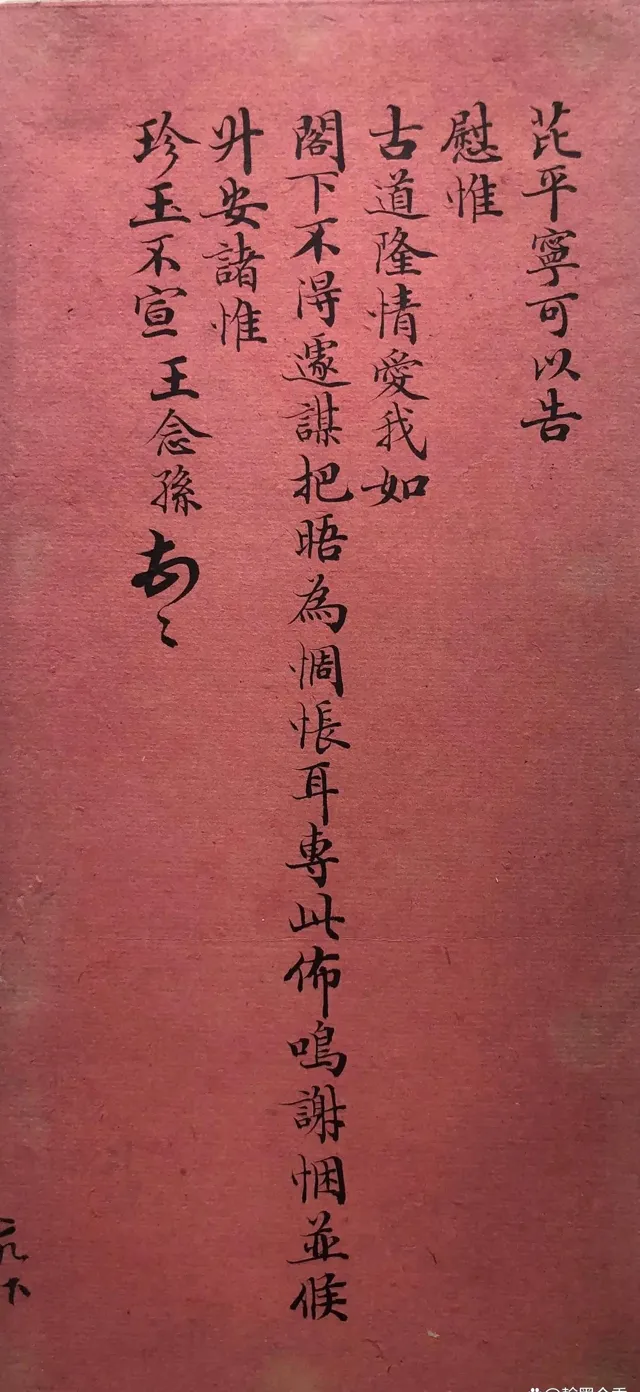 芘平寧可以告
慰惟
古道隆情愛我如
閣下不得遽謀把晤為惆悵耳專此佈鳴謝悃並候
升安諸惟
珍玉不宣 王念孫